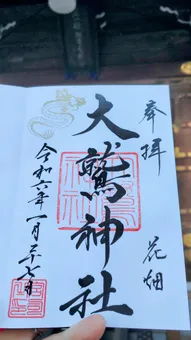 奉拝
花畑
大鷲神社
令和六年一月二十七日